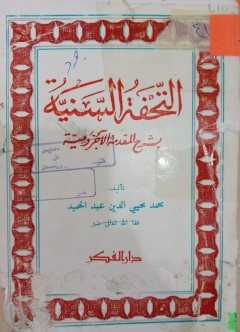 التحفة السنية
بشرح المقدمة الآجرومية
تأليف
محمد محيي الدين عبد الحميد
عفا الله تعالى عنه
دار الفكر